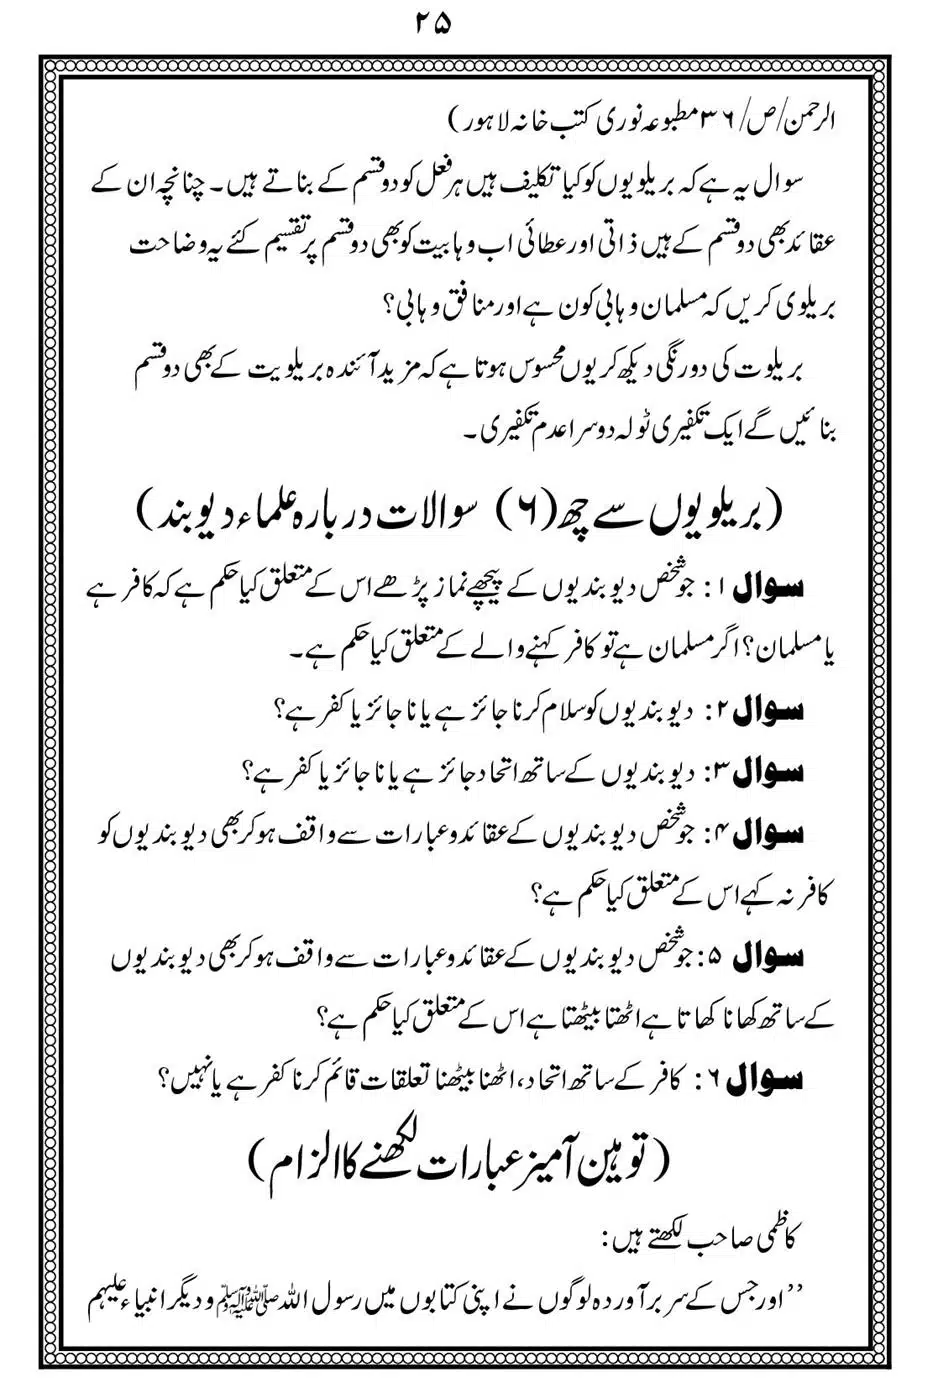 ۲۵
الرحمن/ص/۳۶ مطبوعہ نوری کتب خانہ لاہور)
سوال یہ ہے کہ بریلویوں کو کیا تکلیف ہیں ہر فعل کو دو قسم کے بناتے ہیں۔ چنانچہ ان کے
عقائد بھی دو قسم کے ہیں ذاتی اور عطائی اب وہابیت کو بھی دو قسم پر تقسیم کئے یہ وضاحت
بریلوی کریں کہ مسلمان وہابی کون ہے اور منافق وہابی؟
بریلوت کی دورنگی دیکھ کر یوں محسوس ہوتا ہے کہ مزید آئندہ بریلویت کے بھی دو قسم
بنائیں گے ایک تکفیری ٹولہ دوسرا عدم تکفیری۔
(بریلویوں سے چھ (۶) سوالات دربارہ علماء دیوبند)
سوال ۱: جو شخص دیوبندیوں کے پیچھے نماز پڑھے اس کے متعلق کیا حکم ہے کہ کافر ہے
یا مسلمان؟ اگر مسلمان ہے تو کافر کہنے والے کے متعلق کیا حکم ہے۔
سوال ۲: دیوبندیوں کو سلام کرنا جائز ہے یا ناجائز یا کفر ہے؟
سوال ۳: دیوبندیوں کے ساتھ اتحاد جائز ہے یا ناجائز یا کفر ہے؟
سوال ۴: جو شخص دیوبندیوں کے عقائد و عبارات سے واقف ہو کر بھی دیوبندیوں کو
کافر نہ کہے اس کے متعلق کیا حکم ہے؟
سوال ۵: جو شخص دیوبندیوں کے عقائد و عبارات سے واقف ہو کر بھی دیوبندیوں
کے ساتھ کھانا کھاتا ہے اٹھتا بیٹھتا ہے اس کے متعلق کیا حکم ہے؟
سوال ۶: کافر کے ساتھ اتحاد، اٹھنا بیٹھنا تعلقات قائم کرنا کفر ہے یا نہیں؟
(توہین آمیز عبارات لکھنے کا الزام)
کاظمی صاحب لکھتے ہیں:
’’اور جس کے سربرآوردہ لوگوں نے اپنی کتابوں میں رسول اللہ ﷺ و دیگر انبیاء علیہم